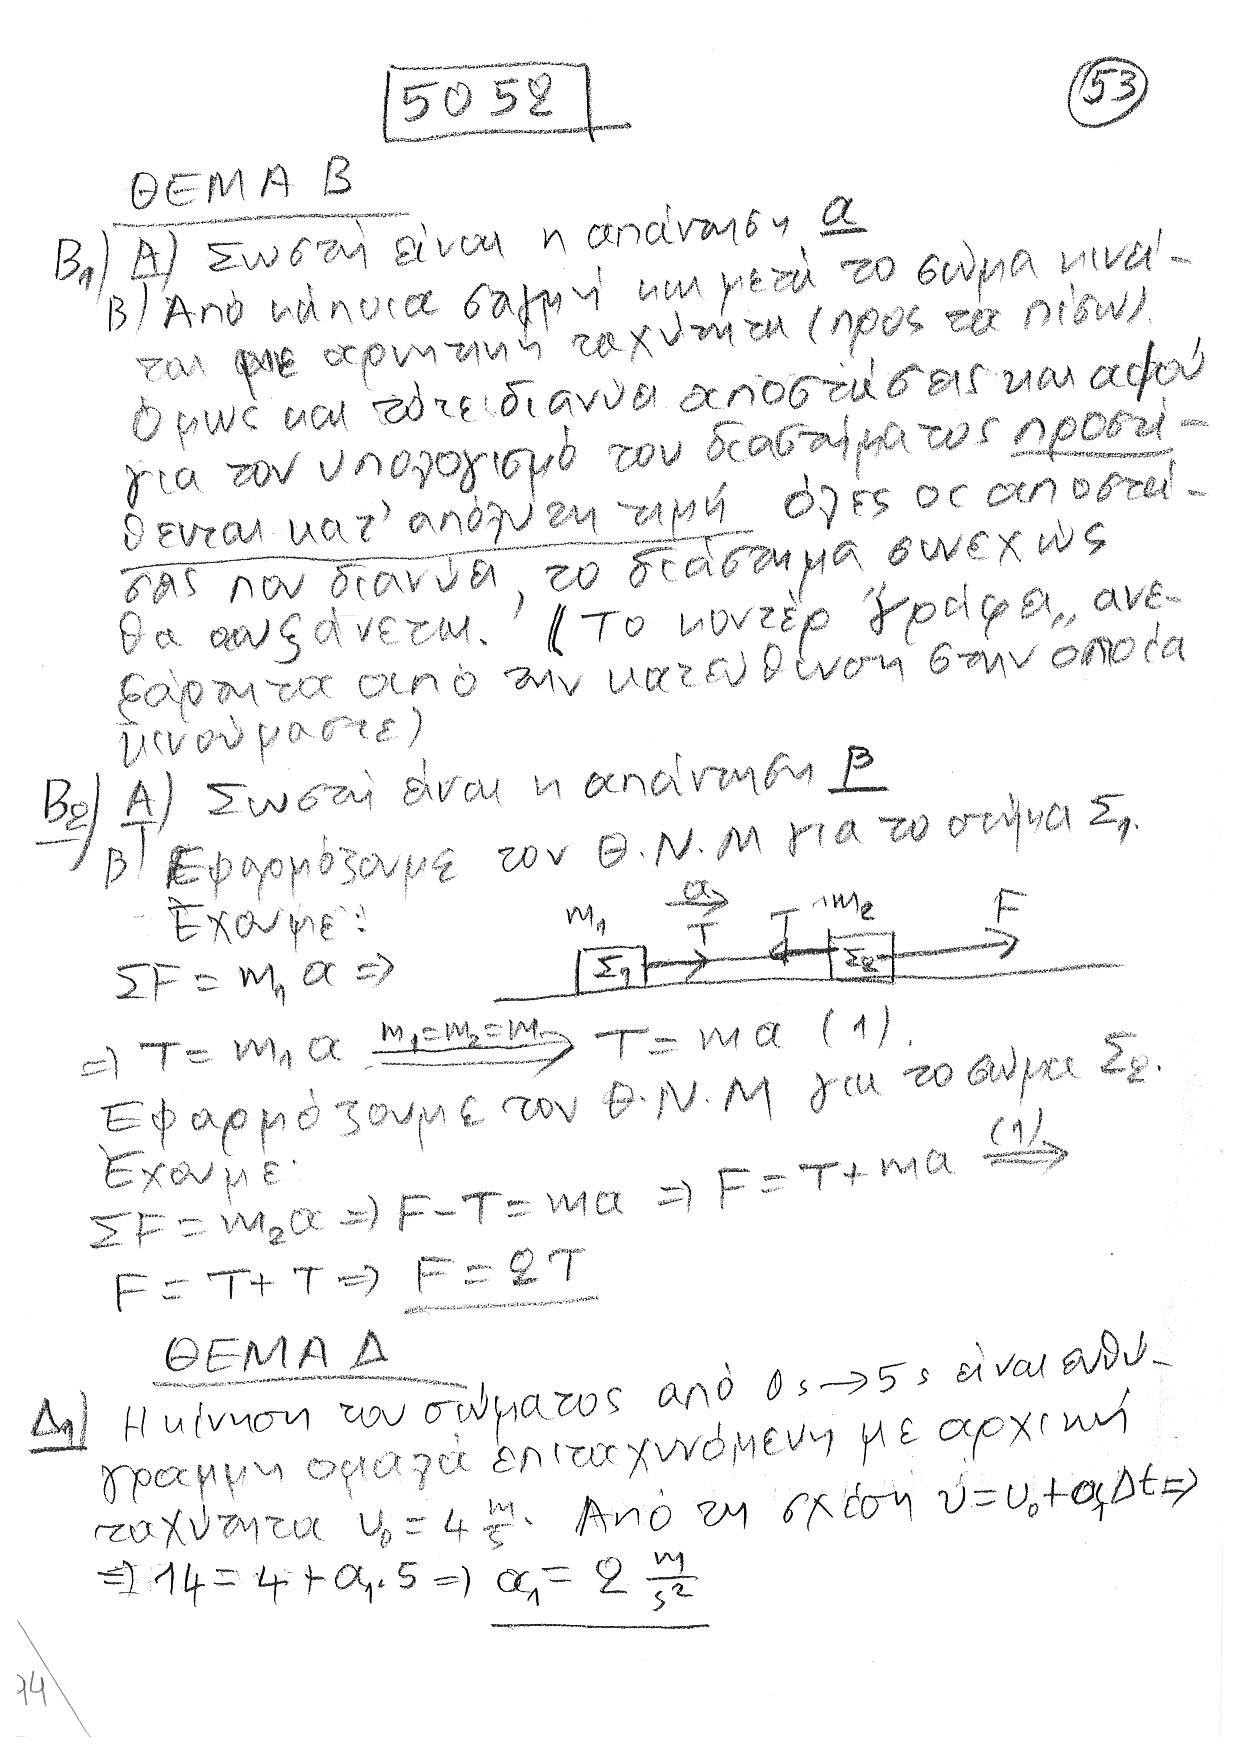 5052
53
ΘΕΜΑ Β
Β₁) Α) Σωστή είναι η απάντηση α
Β) Από κάποια στιγμή και μετά το σώμα κινεί-
ται με αρνητική ταχύτητα (προς τα πίσω).
Όμως και τότε διανύει αποστάσεις και αφού
για τον υπολογισμό του διαστήματος προστί-
θενται κατ' απόλυτη τιμή όλες οι αποστά-
σεις που διανύει, το διάστημα συνεχώς
θα αυξάνεται. (Το κοντέρ "γράφει" ανε-
ξάρτητα από την κατεύθυνση στην οποία
κινούμαστε)
Β₂) Α) Σωστή είναι η απάντηση β
Β) Εφαρμόζουμε τον Θ.Ν.Μ για το σώμα Σ₁.
Έχουμε:
m₁ a T T m₂ F
Σ₁ Σ₂
ΣF = m₁ a ⇒
⇒ T = m₁ a m₁=m₂=m ⇒ T = ma (1).
Εφαρμόζουμε τον Θ.Ν.Μ για το σώμα Σ₂.
Έχουμε:
ΣF = m₂a ⇒ F - T = ma ⇒ F = T + ma (1) ⇒
F = T + T ⇒ F = 2T
ΘΕΜΑ Δ
Δ₁) Η κίνηση του σώματος από 0s → 5s είναι ευθύ-
γραμμη ομαλά επιταχυνόμενη με αρχική
ταχύτητα υ₀ = 4 m/s. Από τη σχέση υ = υ₀ + α₁Δt ⇒
⇒ 14 = 4 + α₁.5 ⇒ α₁ = 2 m/s²
14